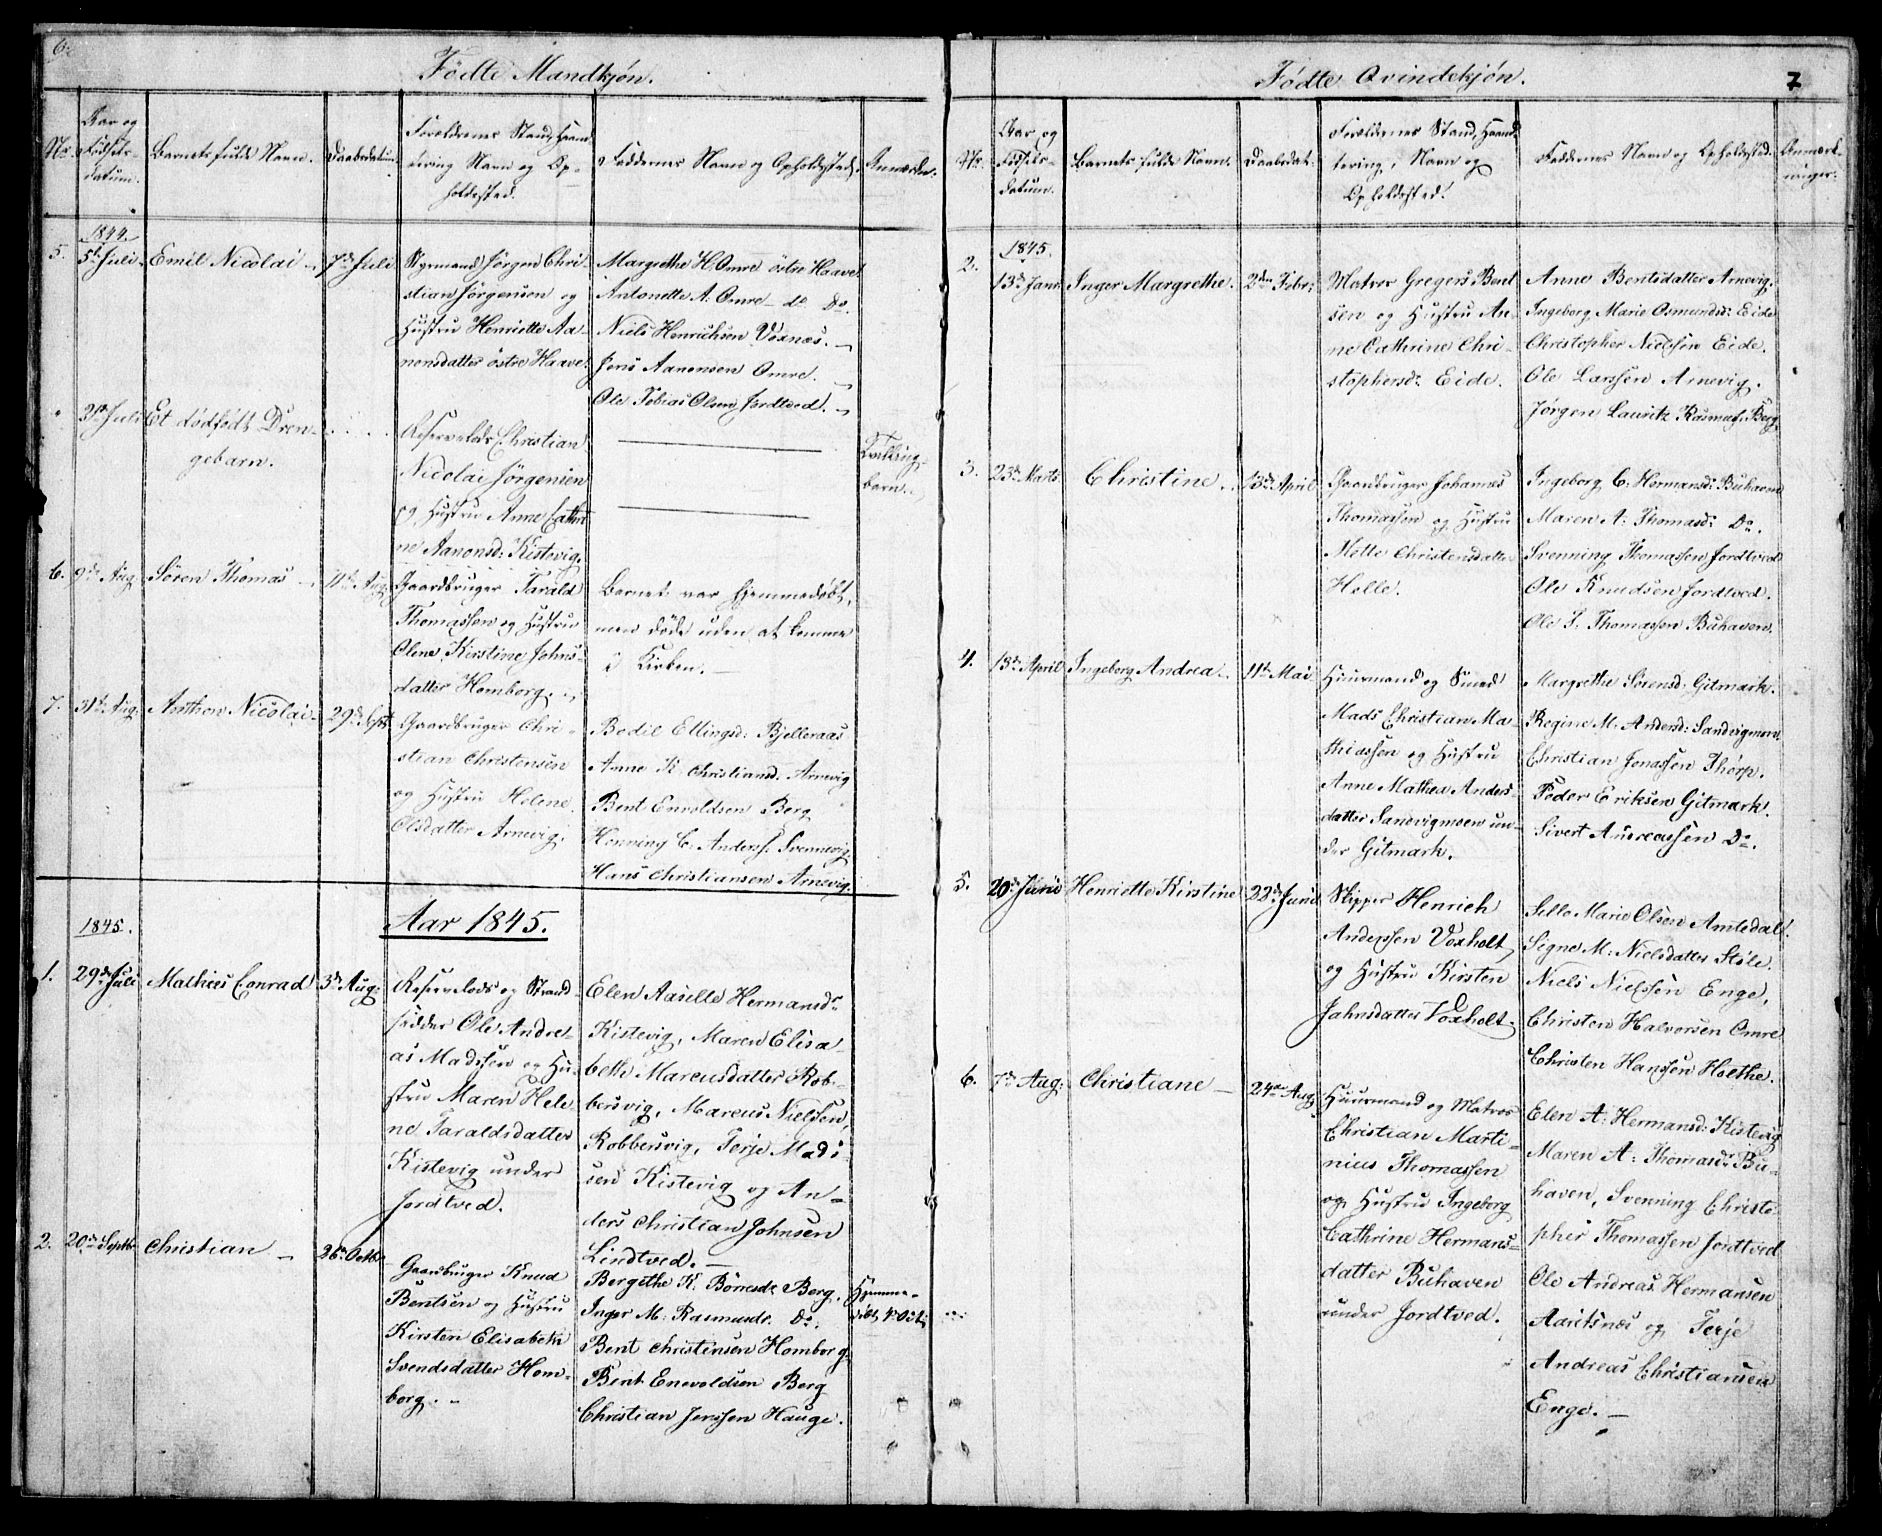 6.
Fødte Mandkjøn.
Nr.
Aar og
Fødsels-
datum.
Barnets fulde Navn.
Daabsdatum.
Forældrenes Stand, Haand-
tering Navn og Op-
holdssted.
Faddernes Navn og Opholdssted.
Anmærkn.
1844.
5.
5te Juli
Emil Nicolai
7de Juli
Styrmand Jørgen Chri-
stian Jørgensen og
Hustru Henriette Aa-
nonsdatter østre Haave.
Margrethe H. Omre østre Haave
Antonette A. Omre do Do.
Niels Henrichsen Voxnæs.
Jens Aanonsen Omre.
Ole Tobias Olsen Jordtved.
Juli
Et dødfødt Dren-
gebarn.
Reservelods Christian
Nicolai Jørgensen
og Hustru Anne Cathri
ne Aanonsd: Kistevig.
Tvilling-
barn.
6.
9de Aug.
Søren Thomas
11te Aug.
Gaardbruger Tarald
Thomassen og Hustru
Olene Kirstine Johns-
datter Homborg.
Barnet var hjemmedøbt,
men døde uden at komme
i Kirken.
7.
31te Aug.
Anthon Nicolai
29de Sept.
Gaardbruger Chri-
stian Christensen
og Hustru Helene
Olsdatter Arnevig.
Bodil Ellingsd: Bjelleraas
Anne K. Christiansd. Arnevig
Bent Envoldsen Berg
Henning C. Anderss. Svennevig
Hans Christiansen Arnevig.
Aar 1845.
1845.
1.
29de Juli
Mathies Conrad
3de Aug:
Reservelods og Strand-
sidder Ole Andre-
as Madssen og Hu-
stru Maren Hele
ne Taraldsdatter
Kistevig under
Jordtved.
Elen Aasille Hermansdr
Kistevig, Maren Elisa-
beth Marcusdatter Rob-
bersvig, Marcus Nielssen,
Robbersvig, Terje Mads
sen Kistevig og An-
ders Christian Johnsen
Lindtved.
2.
20de Septbr
Christian
26de Octbr.
Gaardbruger Knud
Bentsen og Hustru
Kirsten Elisabeth
Svendsdatter Hom-
borg.
Bergethe K. Børresdr Berg.
Inger M: Rasmusdr. Do.
Bent Christensen Homborg.
Bent Enevoldsen Berg
Christian Jenssen Hauge.
Hjemme-
døbt 4. Oct.
Fødte Qvindekjøn.
7
Nr.
Aar og
Fødsels-
datum.
Barnets fulde Navn.
Daabsdat:
Forældrenes Stand, Haand
tering, Navn og
Opholdssted.
Faddernes Navn og Opholdssted.
Anmærk-
ninger.
1845.
2.
13de Janr.
Inger Margrethe.
2den Febr.
Matros Gregers Bent
sen og Hustru An-
ne Cathrine Chri-
stophersd: Eide.
Anne Bentsdatter Arnevig.
Ingeborg Marie Osmundsd: Eide
Christopher Nielsen Eide.
Ole Larssen Arnevig.
Jørgen Lauritz Rasmuss. Berg
3.
23de Marts
Christine
13de April
Gaardbruger Johannes
Thomassen og Hustru
Mette Christensdatter
Helle.
Ingeborg C: Hermansd: Buhaven
Maren A: Thomasd: Do.
Svenning Thomassen Jordtved
Ole Knudsen Jordtved.
Ole S. Thomassen Buhaven.
4.
13de April
Ingeborg Andrea
11te Mai
Huusmand og Smed
Mads Christian Ma-
thiassen og Hustru
Anne Mathea Anders-
datter Sandvigmoen un-
der Gitmark.
Margrethe Sørensd: Gitmark.
Regine M. Andersd: Sandvigmoen.
Christian Jonassen Thorp.
Peder Eriksen Gitmark.
Sivert Andreassen Do.
5.
20de Juni
Henriette Kirstine
22de Juni
Skipper Henrich
Anderssen Voxholt,
og Hustru Kirsten
Jahnsdatter Voxholt.
Sille Marie Olsen Amtedal.
Signe M: Nielsdatter Støle.
Niels Nielssen Enge,
Christen Halvorsen Omre
Christen Hanssen Hoethe.
6.
7de Aug:
Christiane
24de Aug.
Huusmand og Matros
Christian Marti-
nius Thomassen
og Hustru Ingeborg
Cathrine Hermans-
datter Buhaven
under Jordtved.
Elen A: Hermansd: Kistevig
Maren A: Thomasdr Bu-
haven, Svenning Christo-
pher Thomassen Jordtved
Ole Andreas Hermansen
Aaritsnæs og Terje
Andreas Christiansen
Enge.